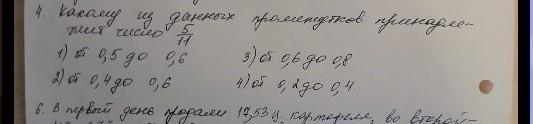 4. Какому из данных промежутков принадле-
жит число 5/11
1) от 0,5 до 0,6 3) от 0,6 до 0,8
2) от 0,4 до 0,6 4) от 0,2 до 0,4.
6. В первый день продали 17,53 ц картофеля, во второй-